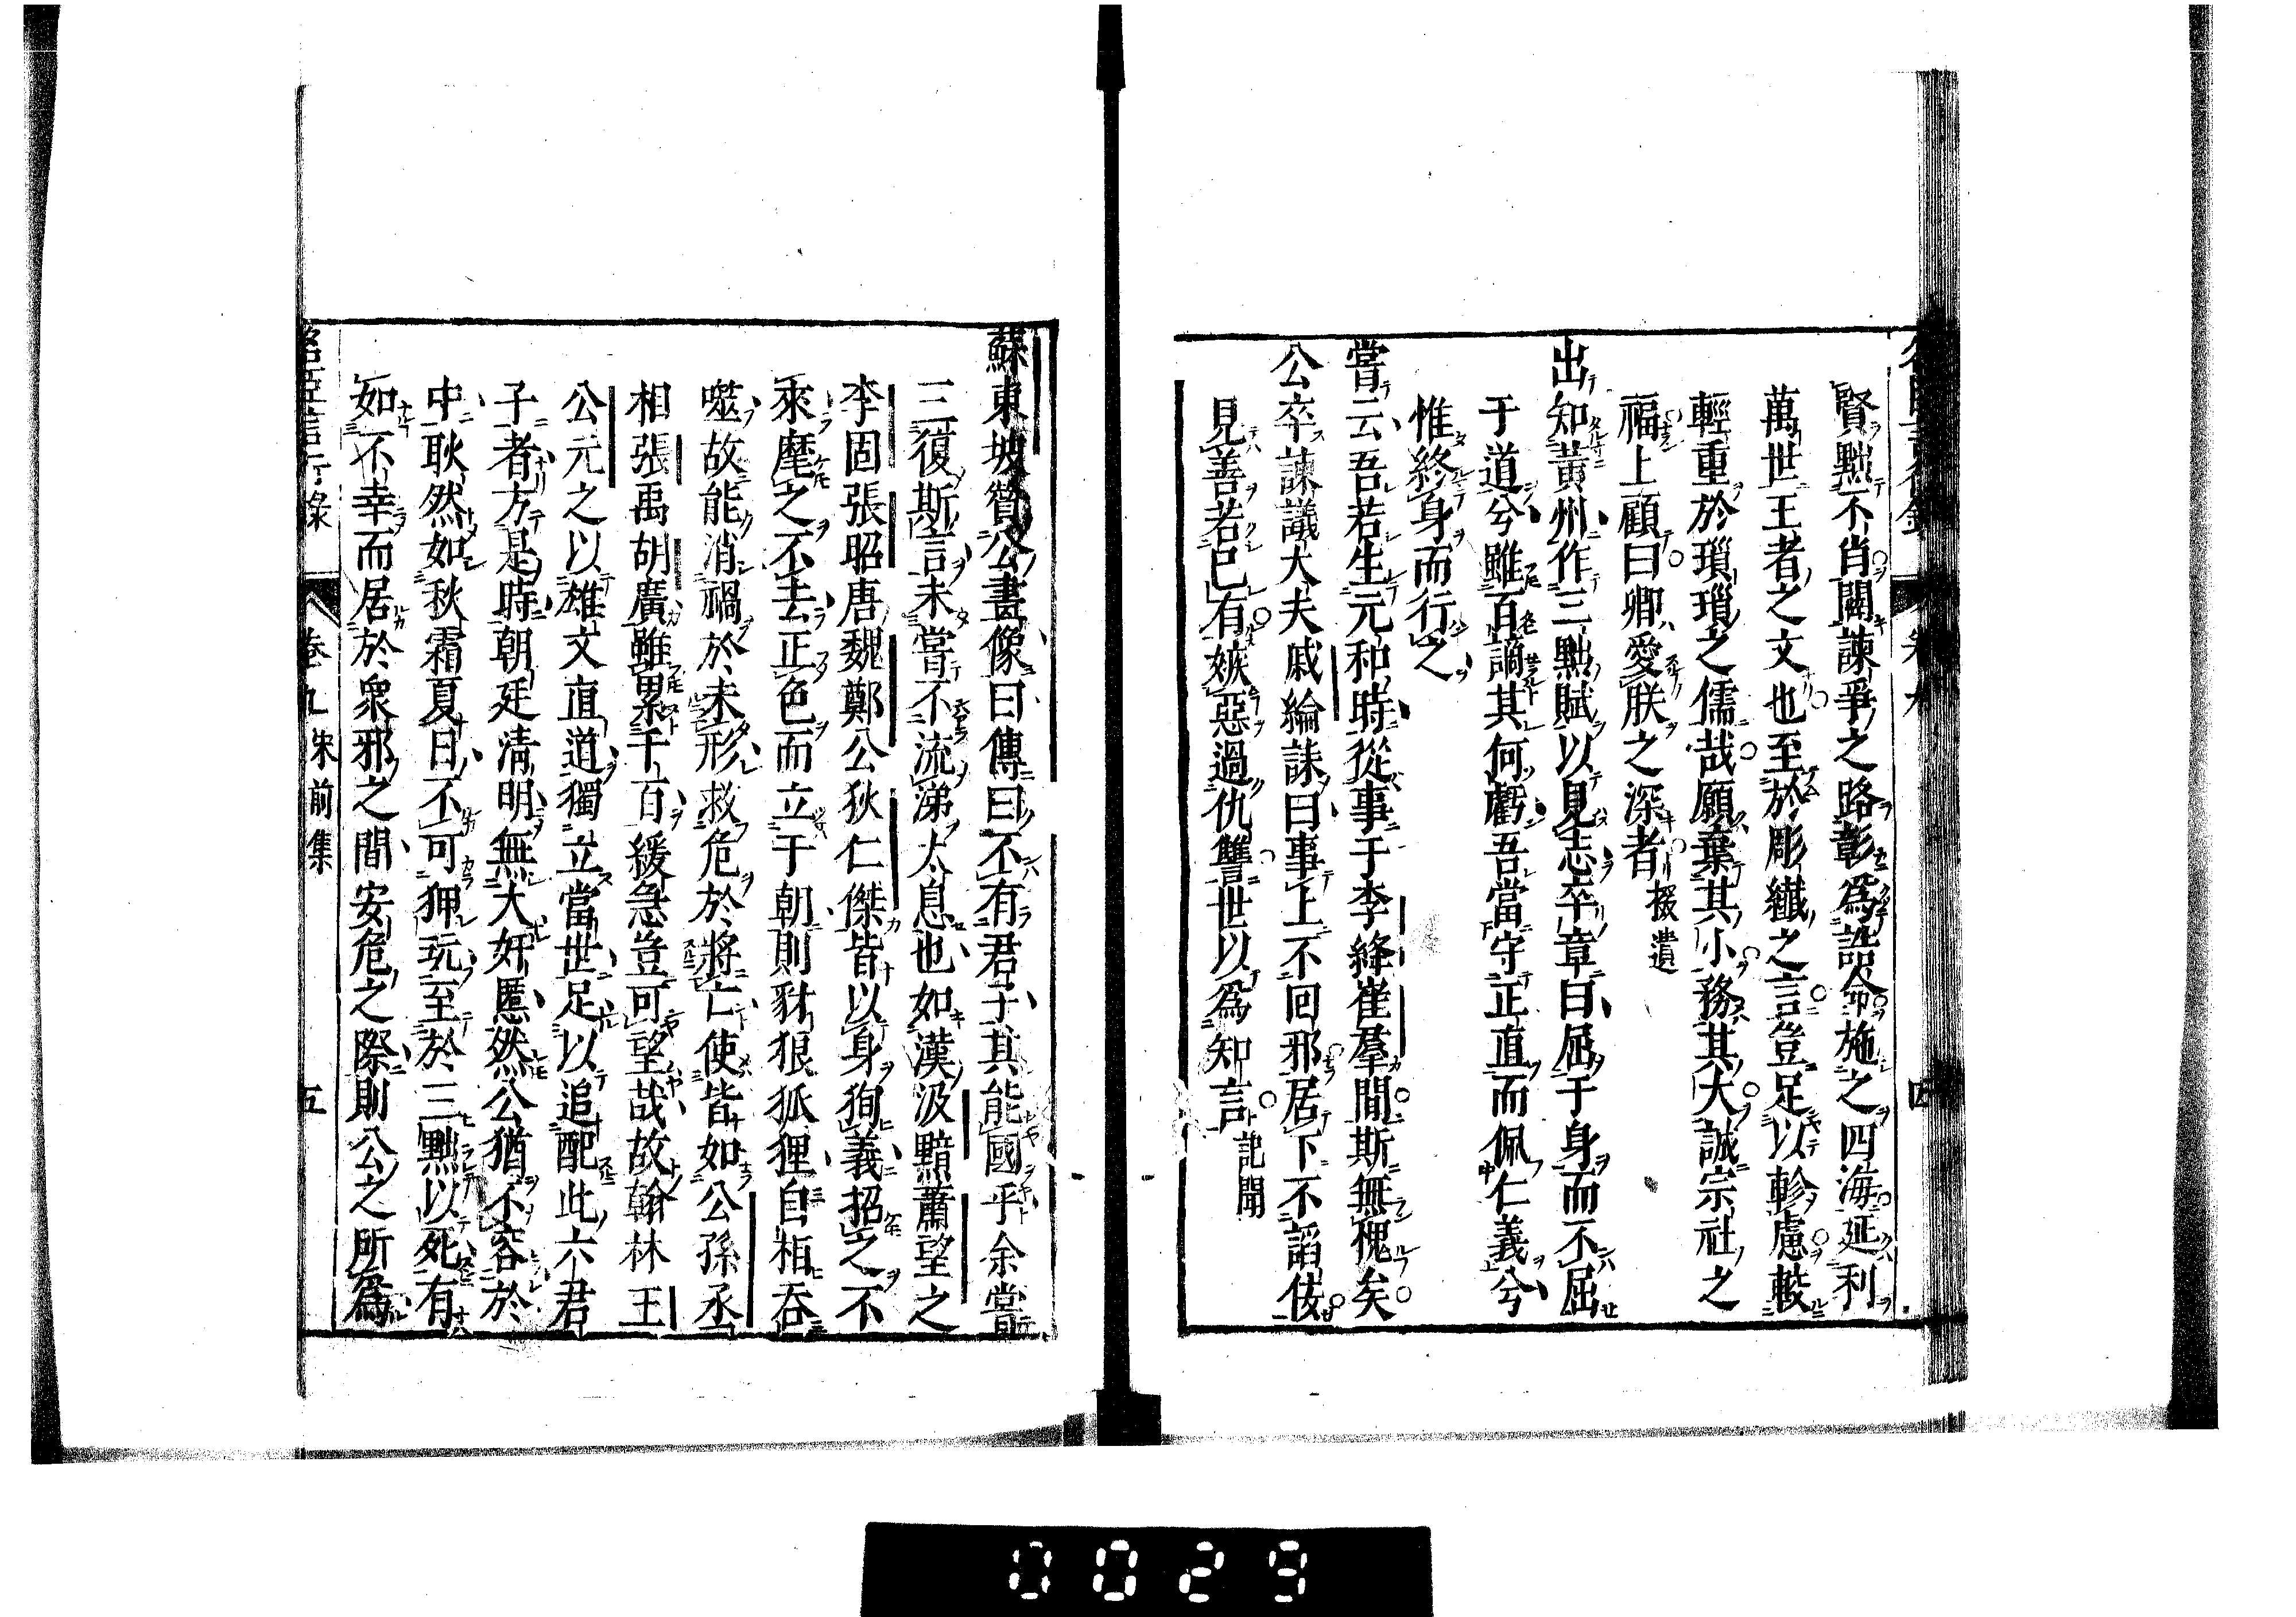 賢黜不肖闢諫爭之路彰爲誥命施之四海延利
萬世王者之文也至於彫纖之言豈足以軫慮較
輕重於瑣瑣之儒哉願棄其小務其大誠宗社之
福上顧曰卿愛朕之深者掇遺
出知黃州作三黜賦以見志卒章曰屈于身而不屈
于道兮雖百謫其何虧吾當守正直而佩仁義兮
惟終身而行之
嘗云吾若生元和時從事于李絳崔羣間斯無愧矣
公卒諫議大夫戚綸誄曰事上不回邪居下不諂佞
見善若己有嫉惡過仇讐世以爲知言記聞
蘇東坡贊公畫像曰傳曰不有君子其能國乎余嘗
三復斯言未嘗不流涕太息也如漢汲黯蕭望之
李固張昭唐魏鄭公狄仁傑皆以身徇義招之不
來麾之不去正色而立于朝則豺狼狐狸自相吞
噬故能消禍於未形救危於將亡使皆如公孫丞
相張禹胡廣雖累千百緩急豈可望哉故翰林王
公元之以雄文直道獨立當世足以追配此六君
子者方是時朝廷淸明無大奸慝然公猶不容於
中耿然如秋霜夏日不可狎玩至於三黜以死有
如不幸而居於衆邪之間安危之際則公之所爲
名臣言行錄 卷九 朱前集 五
0029